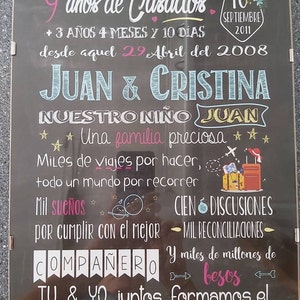 9 años de Casados
10
SEPTIEMBRE
2011
+ 3 AÑOS 4 MESES Y 10 DÍAS
desde aquel 29 Abril del 2008
JUAN & CRISTINA
NUESTRO NIÑO JUAN
Una familia preciosa
Miles de viajes por hacer,
todo un mundo por recorrer
Mil sueños
por cumplir con el mejor
COMPAÑERO
CIEN DISCUSIONES
MIL RECONCILIACIONES
Y miles de millones de
besos
TU & YO juntos formamos el